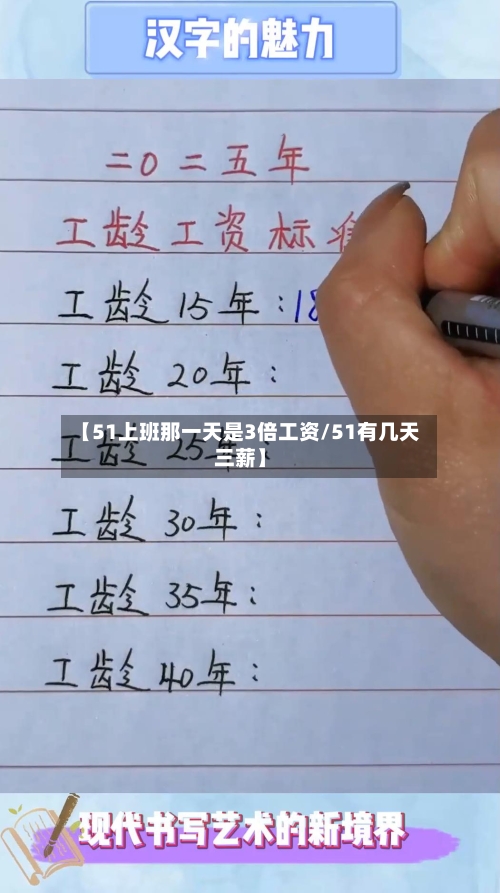 汉字的魅力
二0二五年
工龄工资标准
工龄15年:18
工龄20年:
【51上班那一天是3倍工资/51有几天
三薪】
工龄25年:
工龄30年:
工龄35年:
工龄40年:
现代书写艺术的新境界